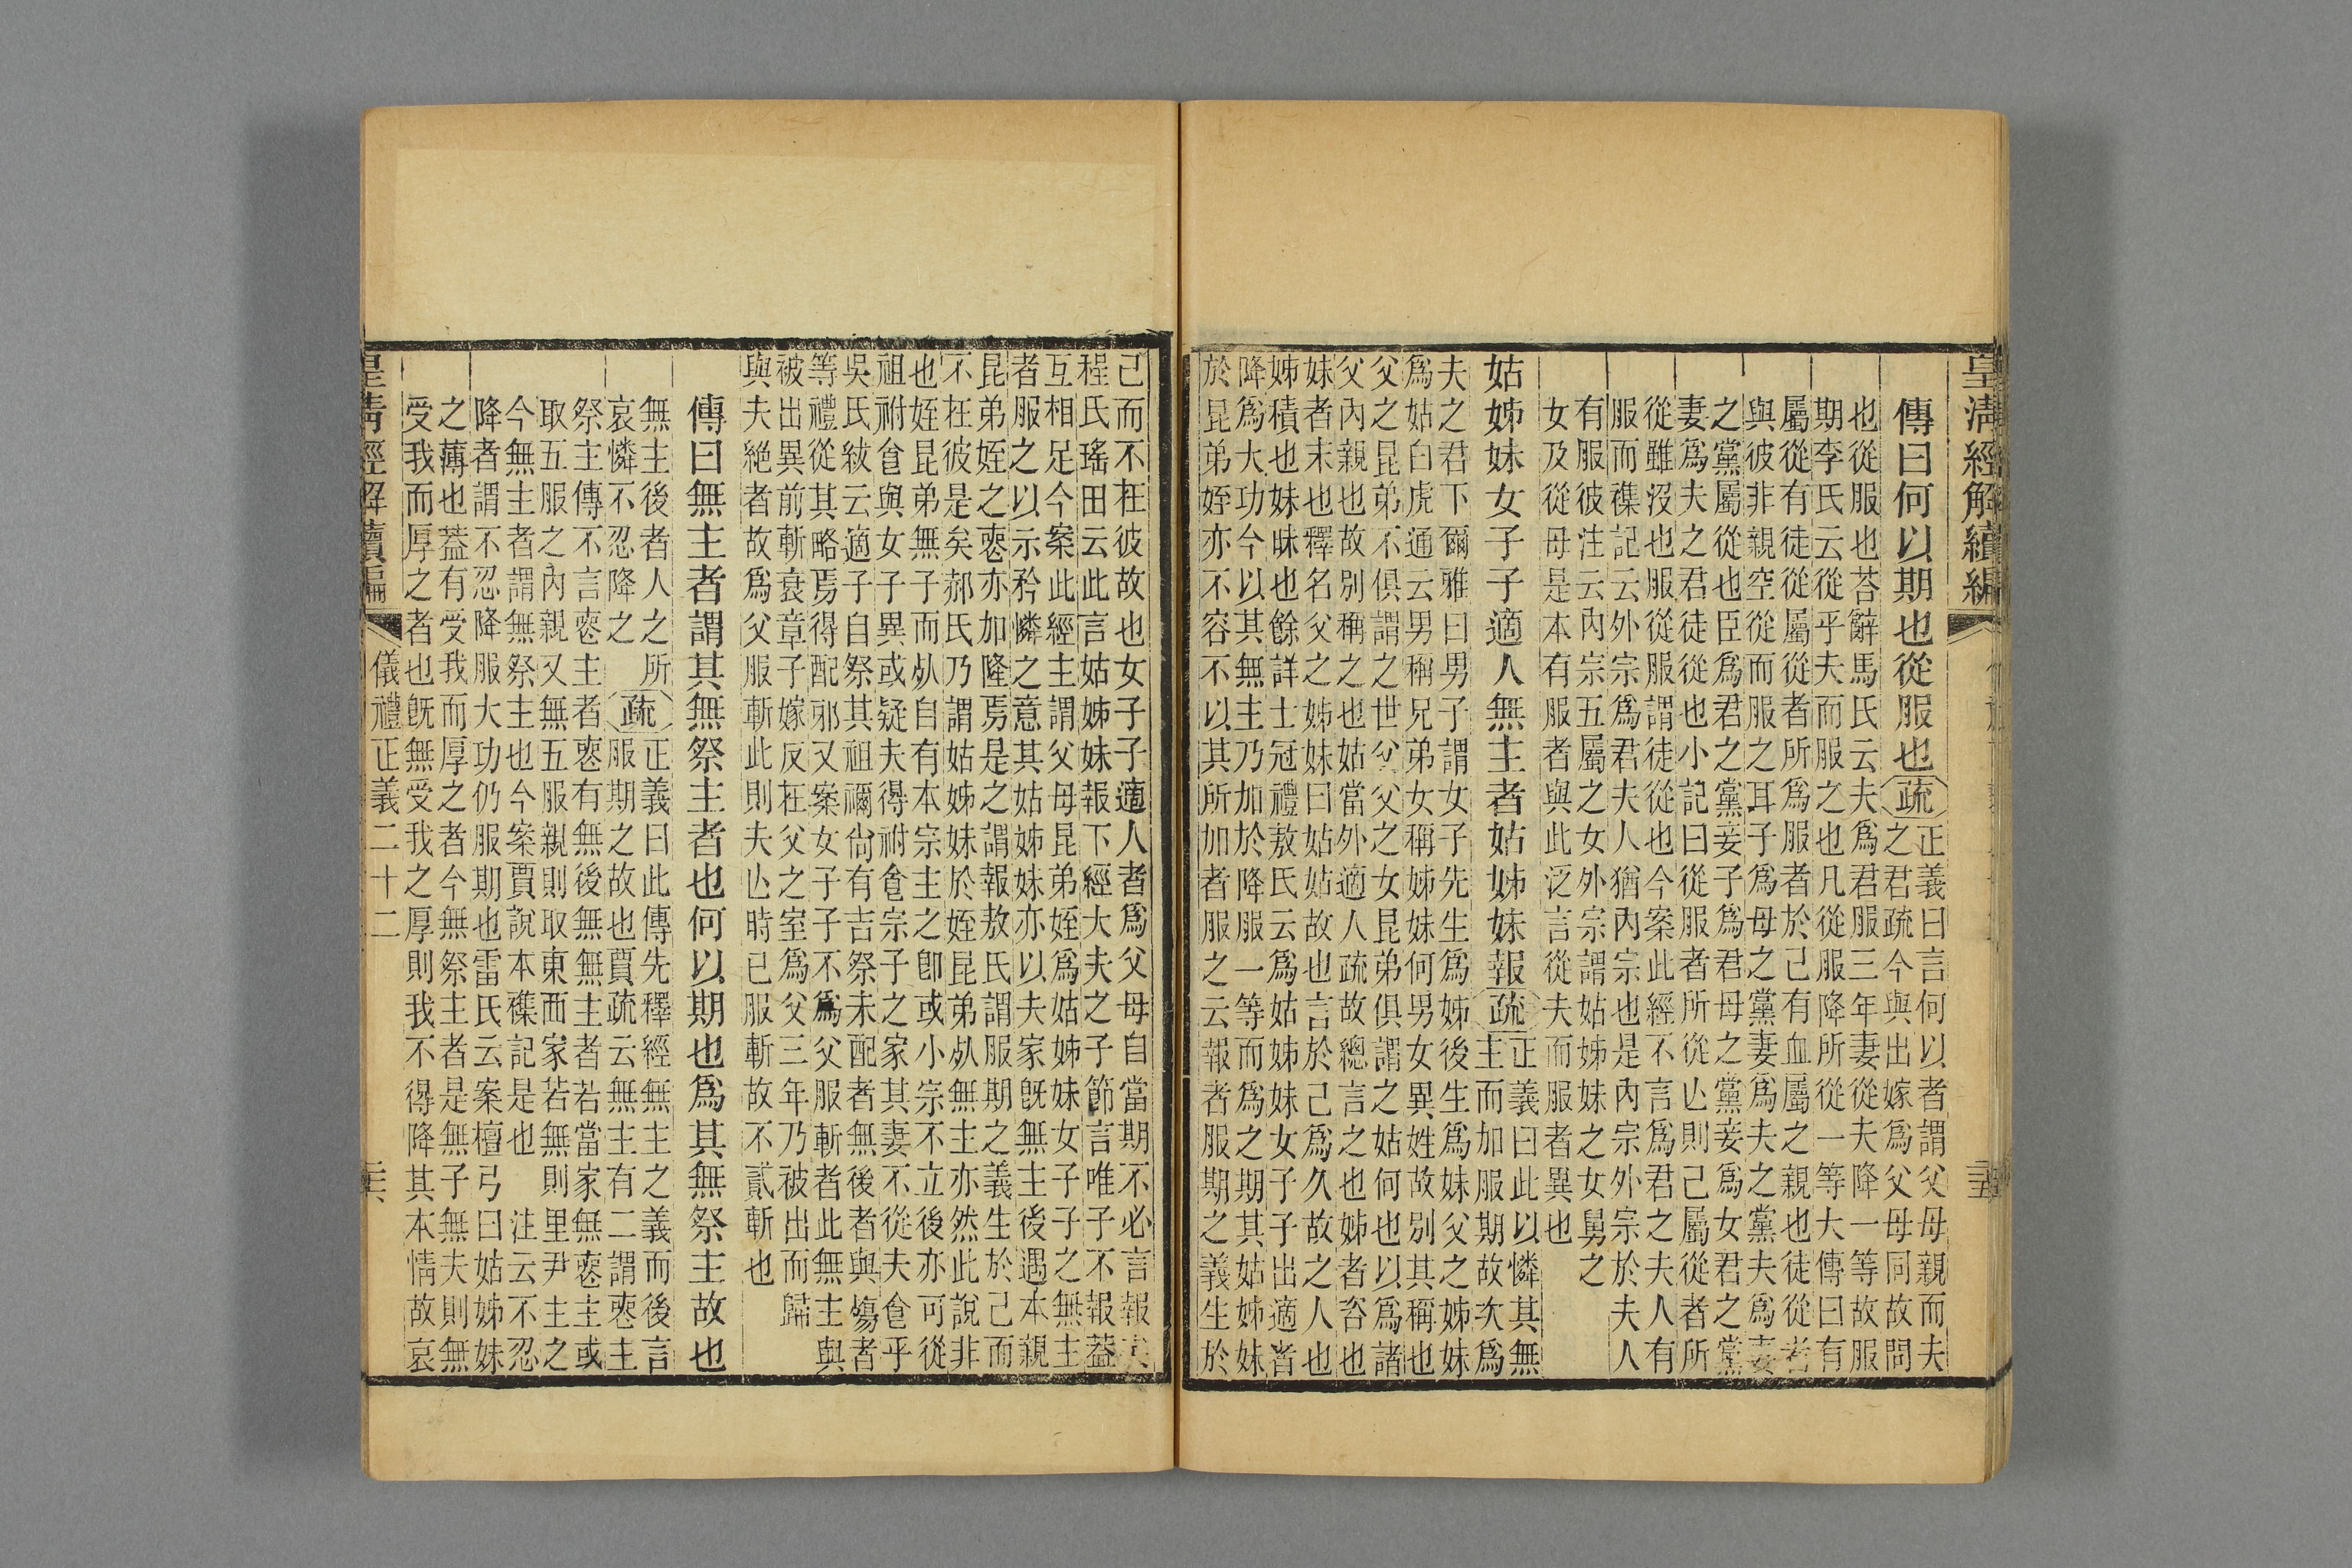 皇淸經解續編
傳曰何以期也從服也
疏
正義曰言何以者謂父母親而夫
之君疏今與出嫁爲父母同故問
也從服也荅辭馬氏云夫爲君服三年妻從夫降一等故服
期李氏云從乎夫而服之也凡從服降所從一等大傳曰有
屬從有徒從屬從者所爲服者於己有血屬之親也徒從者
與彼非親空從而服之耳子爲母之黨妻爲夫之黨夫爲妻
之黨屬從也臣爲君之黨妾子爲君母之黨妾爲女君之黨
妻爲夫之君徒從也小記曰從服者所從亾則已屬從者所
從雖沒也服從服謂徒從也今案此經不言爲君之夫人有
服而襍記云外宗爲君夫人猶內宗也是內宗外宗於夫人
有服彼注云內宗五屬之女外宗謂姑姊妹之女舅之
女及從母是本有服者與此泛言從夫而服者異也
姑姊妹女子子適人無主者姑姊妹報
疏
正義曰此以憐其無
主而加服期故次爲
夫之君下爾雅曰男子謂女子先生爲姊後生爲妹父之姊妹
爲姑白虎通云男稱兄弟女稱姊妹何男女異姓故別其稱也
父之昆弟不俱謂之世父父之女昆弟俱謂之姑何也以爲諸
父內親也故別稱之也姑當外適人疏故總言之也姊者咨也
妹者末也釋名父之姊妹曰姑姑故也言於己爲久故之人也
姊積也妹昧也餘詳士冠禮敖氏云爲姑姊妹女子子出適者
降爲大功今以其無主乃加於降服一等而爲之期其姑姊妹
於昆弟姪亦不容不以其所加者服之云報者服期之義生於
己而不在彼故也女子子適人者爲父母自當期不必言報矣
程氏瑤田云此言姑姊妹報下經大夫之子節言唯子不報葢
互相足今案此經主謂父母昆弟姪爲姑姊妹女子子之無主
者服之以示矜憐之意其姑姊妹亦以夫家旣無主後遇本親
昆弟姪之喪亦加隆焉是之謂報敖氏謂服期之義生於己而
不在彼是矣郝氏乃謂姑姊妹於姪昆弟臥無主亦然此說非
也姪昆弟無子而臥自有本宗主之卽或小宗不立後亦可從
祖祔食與女子異或疑夫得祔食宗子之家其妻不從夫食乎
吳氏紱云適子自祭其祖禰尙有吉祭未配者無後者與殤者
等禮從其略焉得配邪又案女子子不爲父服斬者此無主與
被出異前斬衰章子嫁反在父之室爲父三年乃被出而歸
與夫絕者故爲父服斬此則夫亾時已服斬故不貳斬也
傳曰無主者謂其無祭主者也何以期也爲其無祭主故也
無主後者人之所
哀憐不忍降之
疏
正義曰此傳先釋經無主之義而後言
服期之故也賈疏云無主有二謂喪主
祭主傳不言喪主者喪有無後無無主者若當家無喪主或
取五服之內親又無五服親則取東西家若無則里尹主之
今無主者謂無祭主也今案賈說本襍記是也　注云不忍
降者謂不忍降服大功仍服期也雷氏云案檀弓曰姑姊妹
之薄也葢有受我而厚之者今無祭主者是無子無夫則無
受我而厚之者也旣無受我之厚則我不得降其本情故哀
皇淸經解續編
儀禮正義二十二